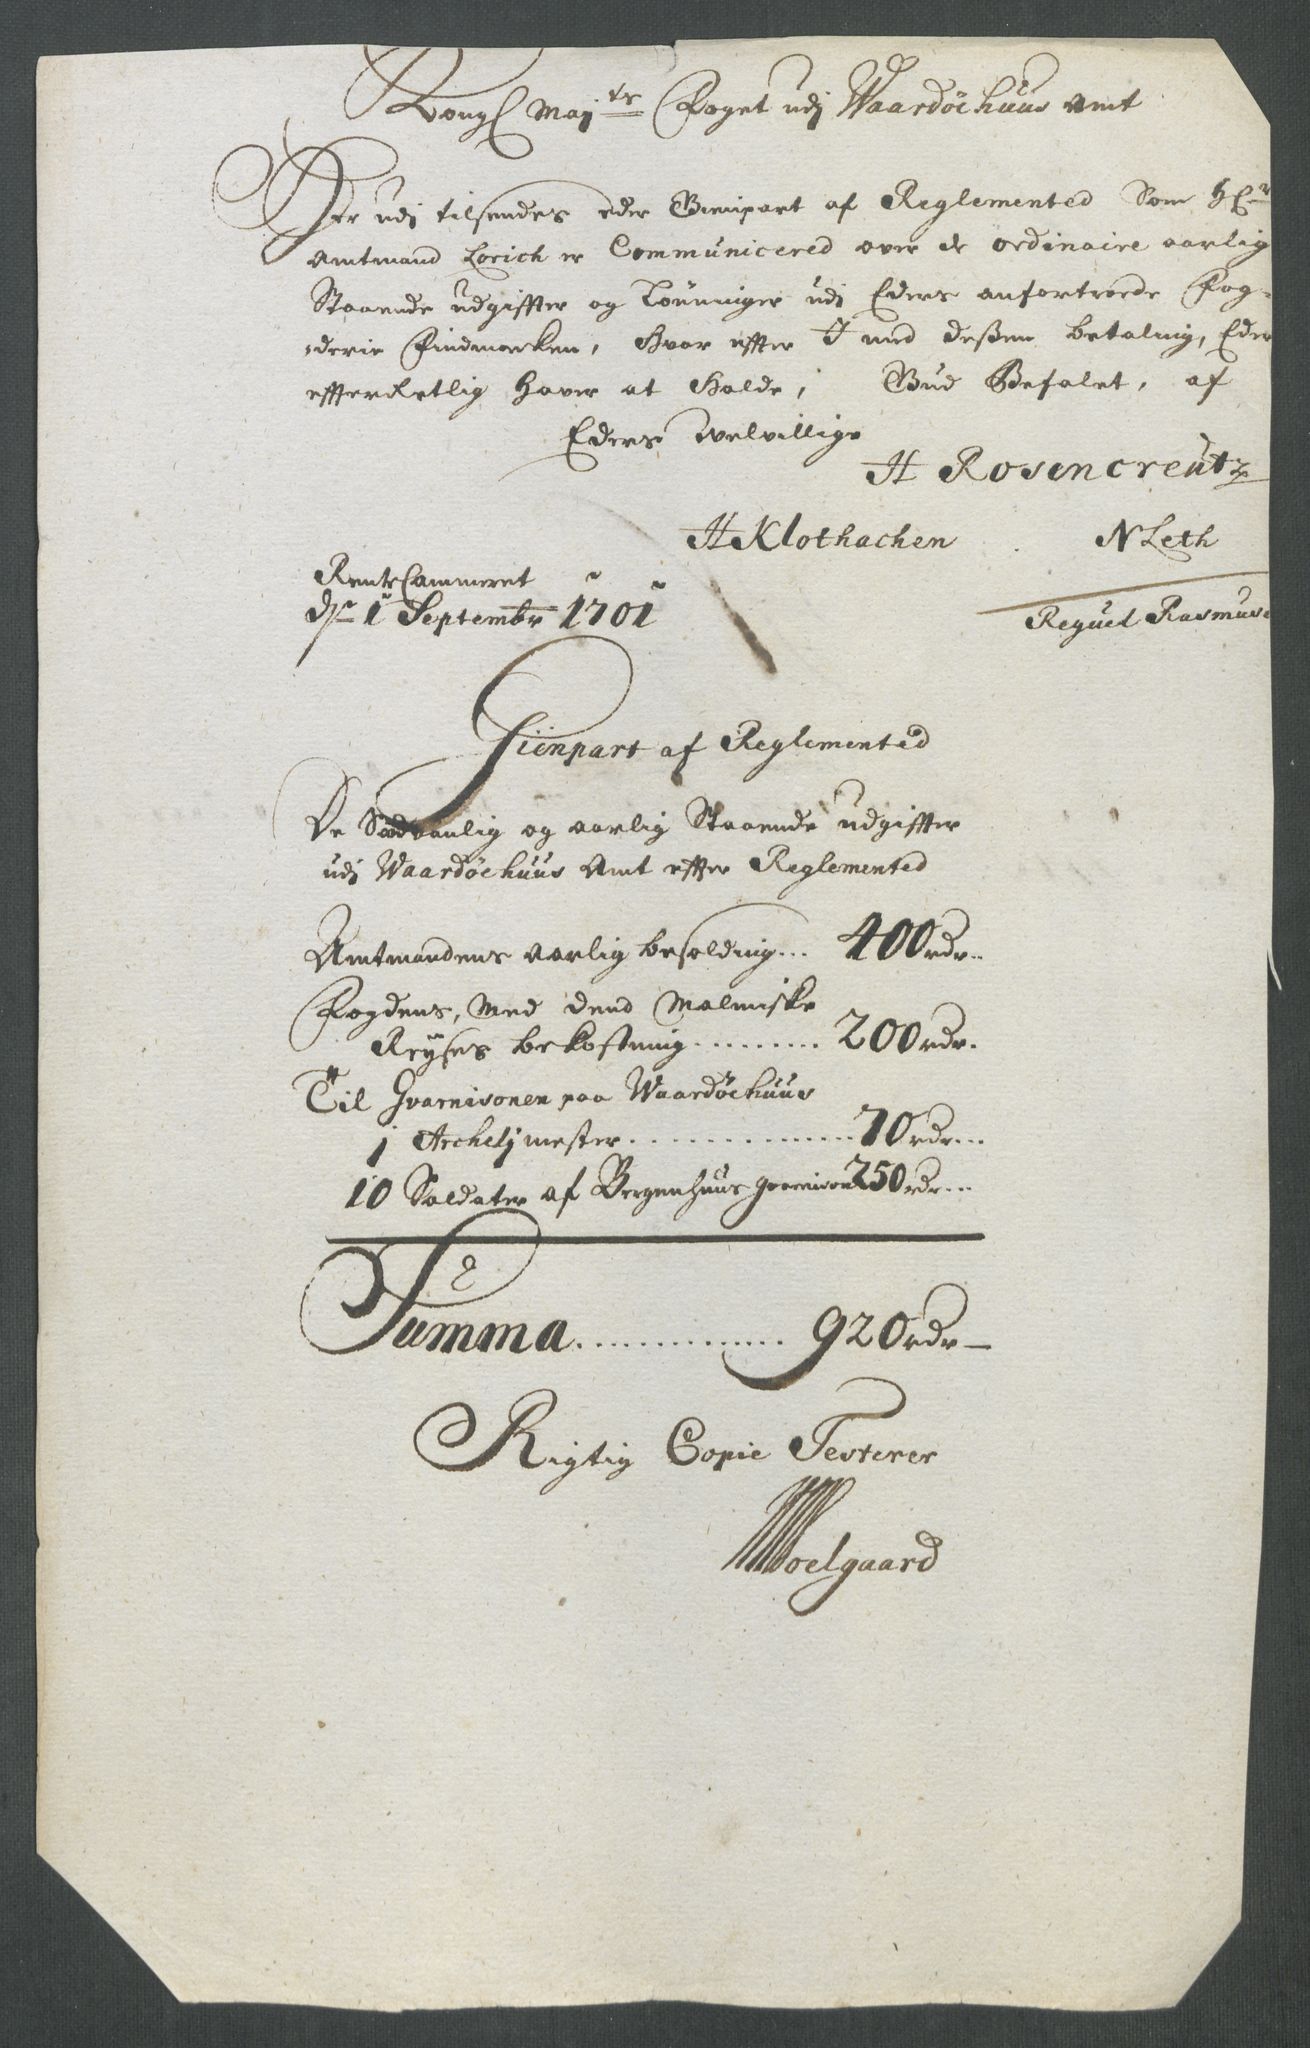 Kongl Maj^ts Foget udj Waardöehuus Amt
Her udj tilsendes eder Gienpart af Reglemented Som H^r
Amtmand Lorich er Communicered over de ordinaire aarlig
Staaende udgiffter og Lönninger udj Eders anfortroede Fog-
derie Findmarken, Hvor effter I med deßen betaling, Eder
effterRetlig haver at Holde, Gud Befalet, af
Eders velvillige
H Rosencreutz
H Klothachen N Leth
RenteCammeret
d. 1 Septembr 1701
Reguel Rasmuse
Giienpart af Reglemented
De Sædvanlig og aarlig Staaende udgiffter
udj Waardöehuus Amt effter Reglemented
Amtmandens aarlig besolding... 400 rdr..
Fogdens, Med dend Malmiske
Reyses bekostning......... 200 rdr.
Til Gvarnisonen paa Waardöehuus
1 Archelj mester............... 70 rdr...
10 Soldater af Bergenhuus Gvarnison 250 rdr...
Summa............. 920 rdr—
Rigtig Copie Testerer
Moelgaard